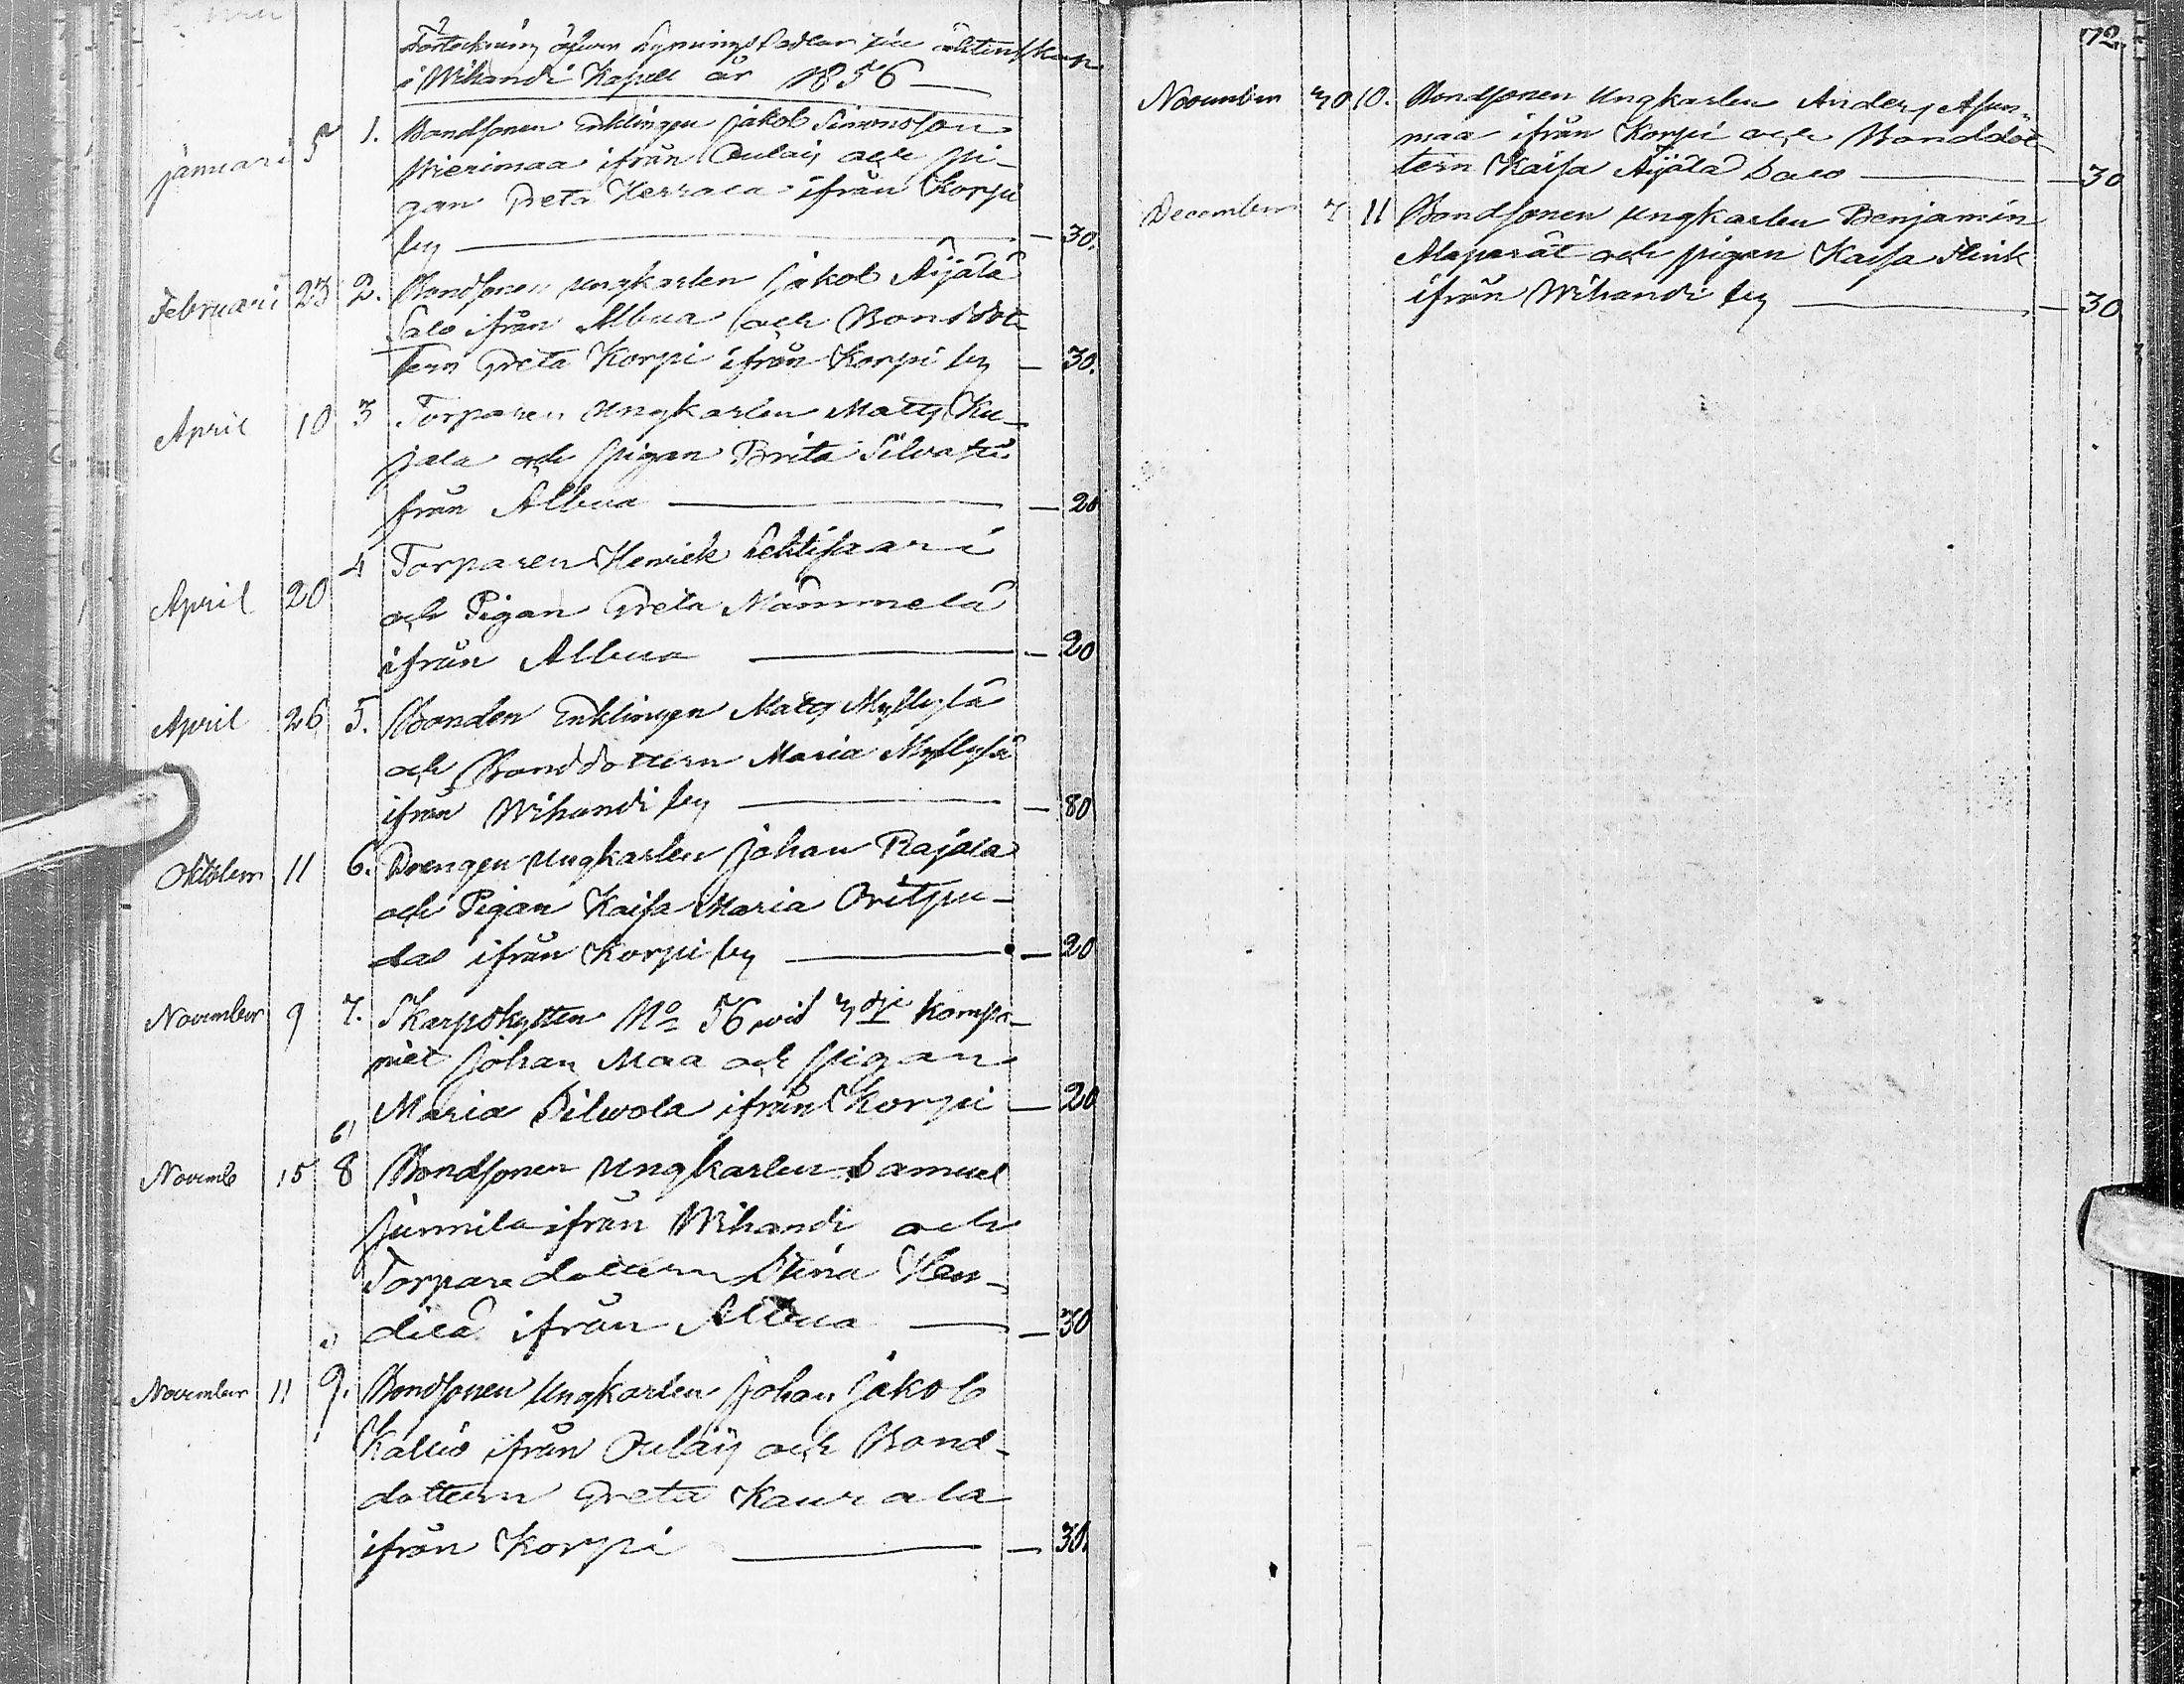 Förteckning öfwer Lysnings Sedlar till äktenskap
i Wihandi Kapell år 1856
Januari 5 1. Bondsonen Enklingen Jakob Simonsson
Wierimaa ifrån Oulais och Pi-
gan Greta Herrala ifrån Korpi
by — 30.
Februari 23 2. Bondsonen Ungkarlen Jakob Äijälä
Salo ifrån Albua och Bonddot-
tern Greta Korpi ifrån Korpi by — 30.
April 10 3 Torparen Ungkarlen Matts Ku-
jala och Pigan Brita
från Albua — 20
April 20 4 Torparen Henrick Lehtisaari
och Pigan Greta Nämmelä
ifrån Albua — 20
April 26 5. Bonden Enklingen Matts Myllylä
och Bonddottern Maria Myllylä
ifrån Wihandi by — 80
Oktober 11 6. Drengen Ungkarlen Johan Rajala
och Pigan Kaisa Maria Oritpu-
das ifrån Korpi by — 20
November 9 7. Skarpskytten No 56 wid 3dje Kompa-
niet Johan Maa och Pigan
Maria Pilwola ifrån Korpi — 20
Novemb 15 8 Bondsonen Ungkarlen Samuel
Junnila ifrån Wihandi och
Torparedottern Stina Hen-
dilä ifrån Albua — 30
November 11 9. Bondsonen Ungkarlen Johan Jakob
Kallio ifrån Oulais och Bond-
dottern Greta Kaurala
ifrån Korpi — 30.
72.
November 30 10. Bondsonen Ungkarlen Anders Asun-
maa ifrån Korpi och Bonddot-
tern Kaisa Äijälä Salo — 30
December 7 11 Bondsonen Ungkarlen Benjamin
Alaperät och Pigan Kaisa Flink
ifrån Wihandi by — 30